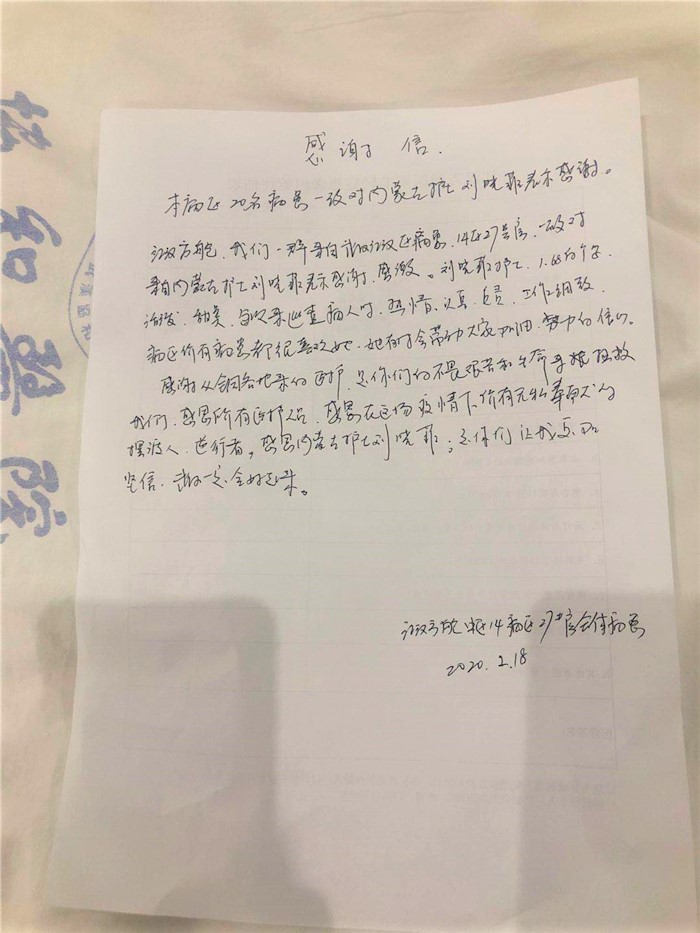 感谢信.
本病区20名病患一致对内蒙古护士刘晓菲表示感谢。
江汉方舱,我们一群来自武汉江汉区病患,14区27号房,一致对
来自内蒙古护士刘晓菲表示感谢、感激。刘晓菲护士,1.68的个子,
短发,每次来巡查病人时,热情、认真、负责,工作细致,
病区所有病患都很喜欢她,她有时会带动大家
感谢从全国各地来的医护,是你们的不畏艰苦和生命来拯救
我们,感恩所有医护人员,感恩在这场疫情下所有无私奉献的
摆渡人、逆行者。感恩内蒙古护士刘晓菲;是你们让我更加
坚信,武汉一定会好起来。
江汉方舱 14病区27号房全体病患
2020.2.18
协和医院